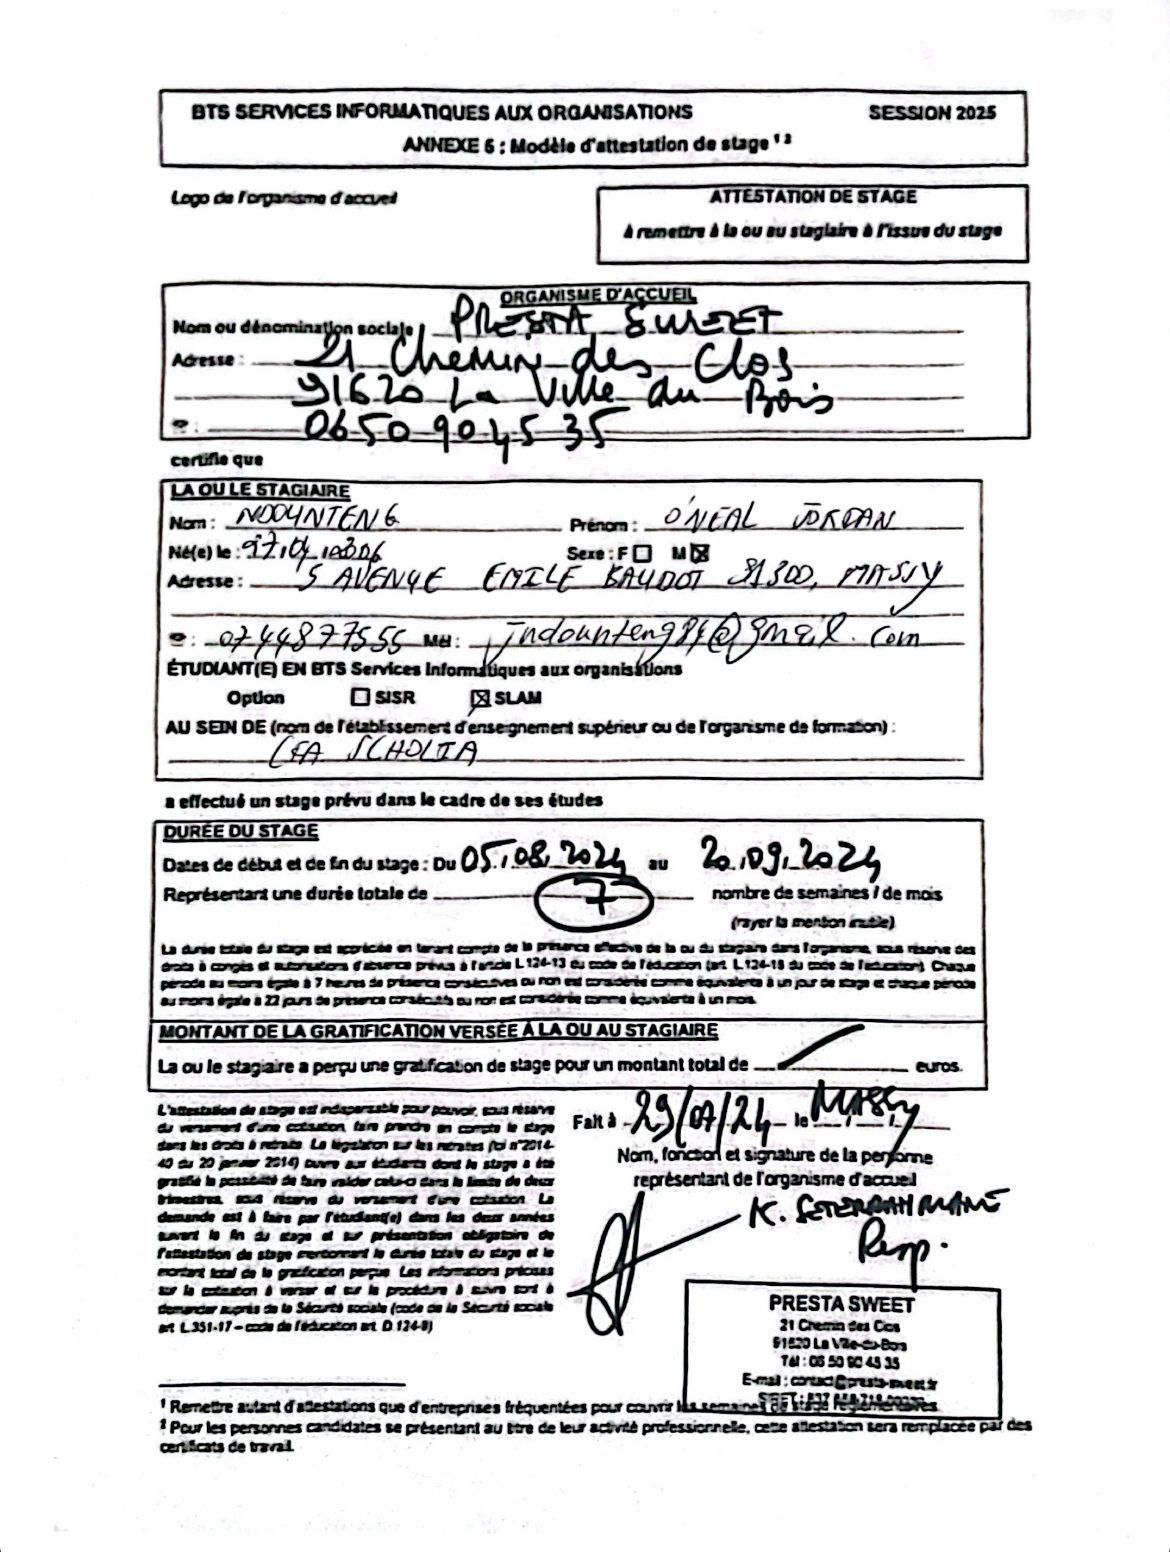 BTS SERVICES INFORMATIQUES AUX ORGANISATIONS SESSION 2025
ANNEXE 6 : Modèle d'attestation de stage ¹ ²
Logo de l'organisme d'accueil
ATTESTATION DE STAGE
à remettre à la ou au stagiaire à l'issue du stage
ORGANISME D'ACCUEIL
Nom ou dénomination sociale PRESTA SWEET
Adresse : 21 Chemin des Clos
91620 La Ville du Bois
☎ : 06 50 90 45 35
certifie que
LA OU LE STAGIAIRE
Nom : NDOUNTENG Prénom : O'NEAL JORDAN
Né(e) le : Sexe : F ☐ M ☒
Adresse : 5 AVENUE EMILE BAUDOT 91300, MASSY
☎ : 0744877555 Mél : jndounteng84@gmail.com
ÉTUDIANT(E) EN BTS Services Informatiques aux organisations
Option ☐ SISR ☒ SLAM
AU SEIN DE (nom de l'établissement d'enseignement supérieur ou de l'organisme de formation) :
CFA SCHOLIA
a effectué un stage prévu dans le cadre de ses études
DURÉE DU STAGE
Dates de début et de fin du stage : Du 05.08.2024 au 20.09.2024
Représentant une durée totale de 7 nombre de semaines / de mois
(rayer la mention inutile)
La durée totale du stage est appréciée en tenant compte de la présence effective de la ou du stagiaire dans l'organisme, sous réserve des
droits à congés et autorisations d'absence prévus à l'article L.124-13 du code de l'éducation (art. L.124-18 du code de l'éducation). Chaque
période au moins égale à 7 heures de présence consécutives ou non est considérée comme équivalente à un jour de stage et chaque période
au moins égale à 22 jours de présence consécutifs ou non est considérée comme équivalente à un mois.
MONTANT DE LA GRATIFICATION VERSÉE À LA OU AU STAGIAIRE
La ou le stagiaire a perçu une gratification de stage pour un montant total de / euros.
L'attestation de stage est indispensable pour pouvoir, sous réserve
du versement d'une cotisation, faire prendre en compte le stage
dans les droits à retraite. La législation sur les retraites (loi n°2014-
40 du 20 janvier 2014) ouvre aux étudiants dont le stage a été
gratifié la possibilité de faire valider celui-ci dans la limite de deux
trimestres, sous réserve du versement d'une cotisation. La
demande est à faire par l'étudiant(e) dans les deux années
suivant la fin du stage et sur présentation obligatoire de
l'attestation de stage mentionnant la durée totale du stage et le
montant total de la gratification perçue. Les informations précises
sur la cotisation à verser et sur la procédure à suivre sont à
demander auprès de la Sécurité sociale (code de la Sécurité sociale
art. L.351-17 – code de l'éducation art. D.124-9)
Fait à 29/07/24 le MASSY
Nom, fonction et signature de la personne
représentant de l'organisme d'accueil
K.
Resp.
PRESTA SWEET
21 Chemin des Clos
91620 La Ville-du-Bois
Tél : 06 50 90 45 35
E-mail : contact@presta-sweet.fr
¹ Remettre autant d'attestations que d'entreprises fréquentées pour couvrir les semaines de stage réglementaires.
² Pour les personnes candidates se présentant au titre de leur activité professionnelle, cette attestation sera remplacée par des
certificats de travail.